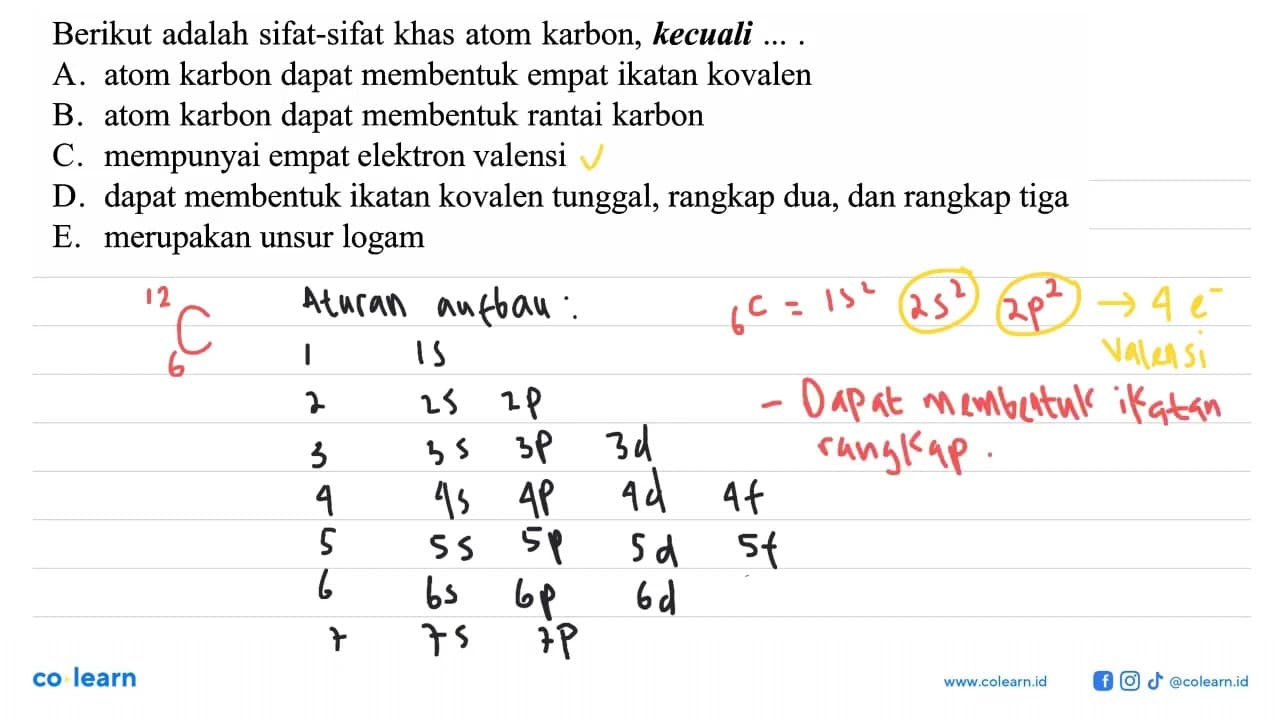 Berikut adalah sifat-sifat khas atom karbon, kecuali ... .
A. atom karbon dapat membentuk empat ikatan kovalen
B. atom karbon dapat membentuk rantai karbon
C. mempunyai empat elektron valensi ✓
D. dapat membentuk ikatan kovalen tunggal, rangkap dua, dan rangkap tiga
E. merupakan unsur logam
¹²₆C
Aturan aufbau :
1 1s
2 2s 2p
3 3s 3p 3d
4 4s 4p 4d 4f
5 5s 5p 5d 5f
6 6s 6p 6d
7 7s 7p
₆C = 1s² 2s² 2p² → 4 e⁻
valensi
- Dapat membentuk ikatan
rangkap .
co learn
www.colearn.id
@colearn.id